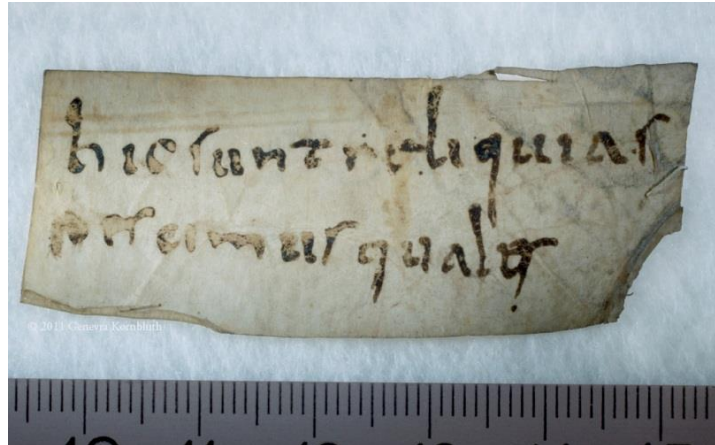 hic sunt reliquias
nescimus quales
© 2011 Genevra Kornbluth